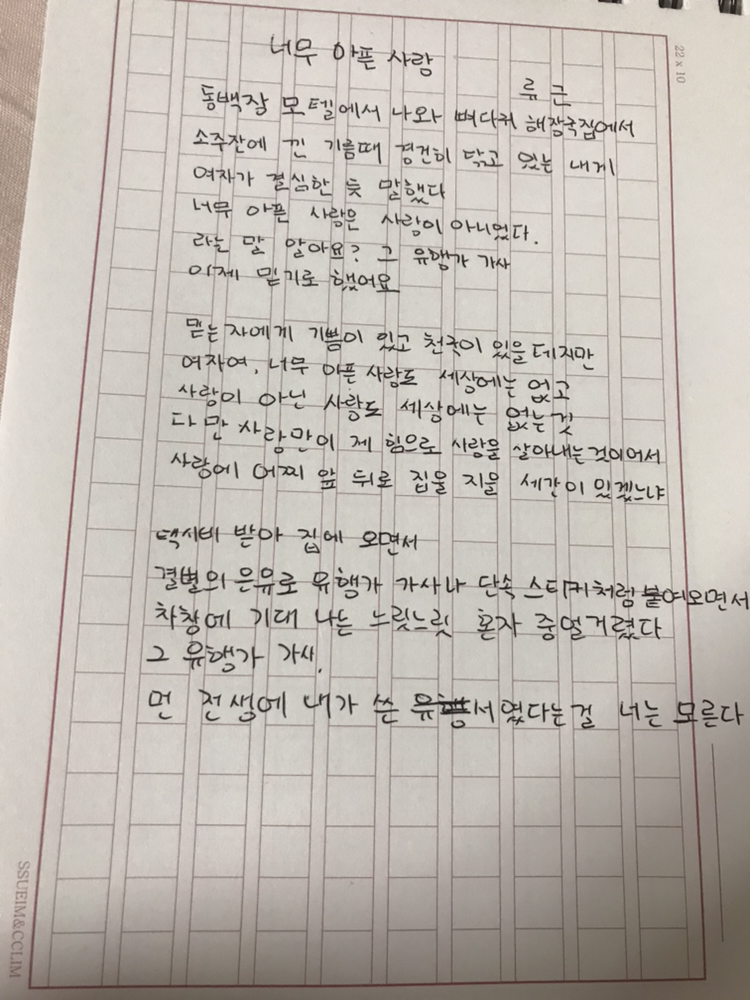 너무 아픈 사랑
류근
동백장 모텔에서 나와 뼈다귀 해장국집에서
소주잔에 낀 기름때 경건히 닦고 있는 내게
여자가 결심한 듯 말했다
너무 아픈 사랑은 사랑이 아니었다.
라는 말 알아요? 그 유행가 가사
이제 믿기로 했어요
믿는 자에게 기쁨이 있고 천국이 있을 테지만
여자여, 너무 아픈 사랑도 세상에는 없고
사랑이 아닌 사랑도 세상에는 없는 것
다만 사랑만이 제 힘으로 사랑을 살아내는 것이어서
사랑에 어찌 앞 뒤로 집을 지을 세간이 있겠느냐
택시비 받아 집에 오면서
결별의 은유로 유행가 가사나 단속 스티커처럼 붙여오면서
차창에 기대 나는 느릿느릿 혼자 중얼거렸다
그 유행가 가사,
먼 전생에 내가 쓴 유서였다는 걸 너는 모른다
22 x 10
SSUEIM&CCLIM